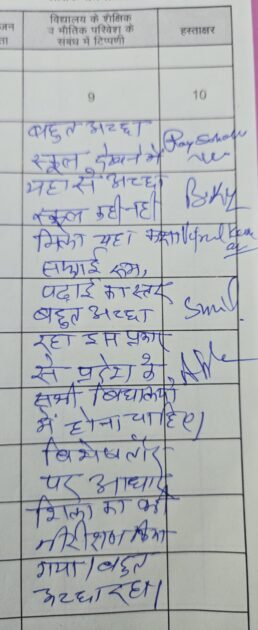 विद्यालय के शैक्षिक
व भौतिक परिवेश के
संबंध में टिप्पणी
हस्ताक्षर
9
10
बहुत अच्छा
स्कूल देखने में
यहा से अच्छा
स्कूल कही नही
मिला यहा
सफाई रूम,
पढाई का स्तर
बहुत अच्छा
रहा इस प्रकार
से प्रदेश के
सभी विद्यालयो
में होना चाहिए।
विशेष तौर
पर आधार
शिला का भी
निरीक्षण किया
गया। बहुत
अच्छा रहा।